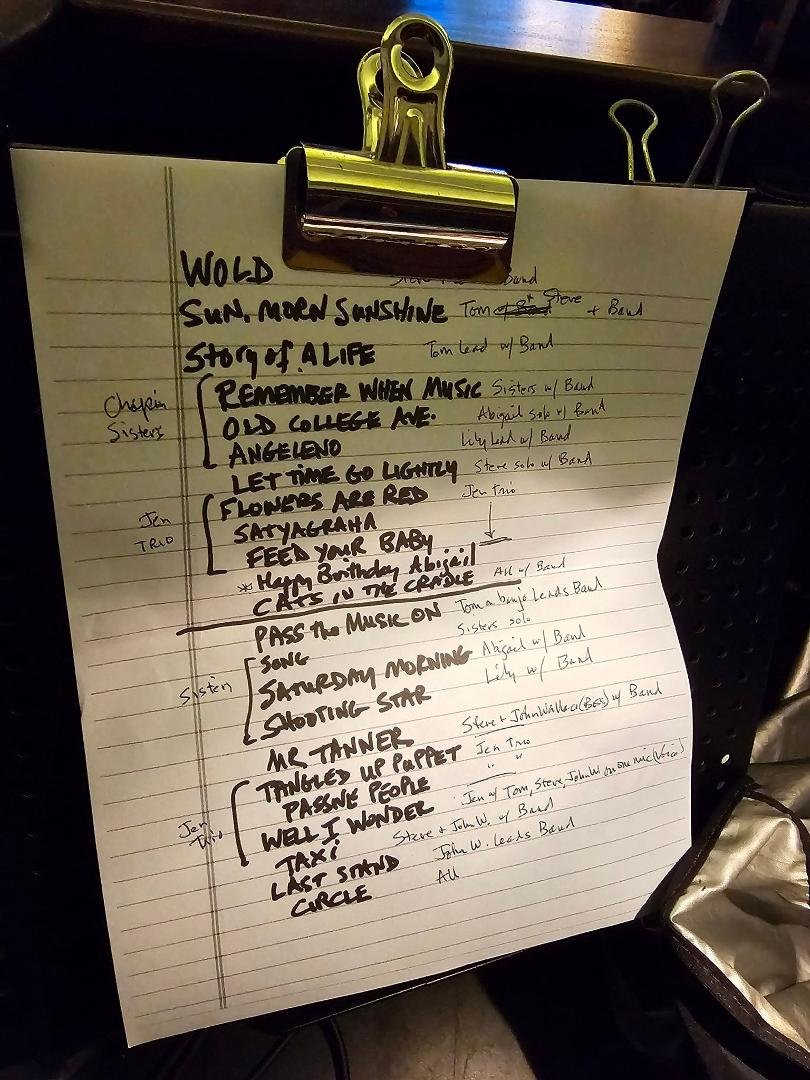 WOLD Band
SUN. MORN SUNSHINE Tom Steve + Band
Story of A LIFE Tom Lead w/ Band
Chapin Sisters
REMEMBER WHEN MUSIC Sisters w/ Band
OLD COLLEGE AVE. Abigail solo w/ Band
ANGELENO Lily Lead w/ Band
LET TIME GO LIGHTLY Steve solo w/ Band
Jen TRIO
FLOWERS ARE RED Jen trio
SATYAGRAHA
FEED YOUR BABY
* Happy Birthday Abigail
CATS IN THE CRADLE All w/ Band
PASS the MUSIC ON Tom on banjo Leads Band
Sisters
SONG Sisters solo
SATURDAY MORNING Abigail w/ Band
SHOOTING STAR Lily w/ Band
MR TANNER Steve + John Wallace (Bass) w/ Band
Jen Trio
TANGLED UP PUPPET Jen Trio
PASSNE PEOPLE " "
WELL I WONDER Jen w/ Tom, Steve, John W on one mic (Voice)
TAXI Steve + John W. w/ Band
LAST STAND John W. Leads Band
CIRCLE All